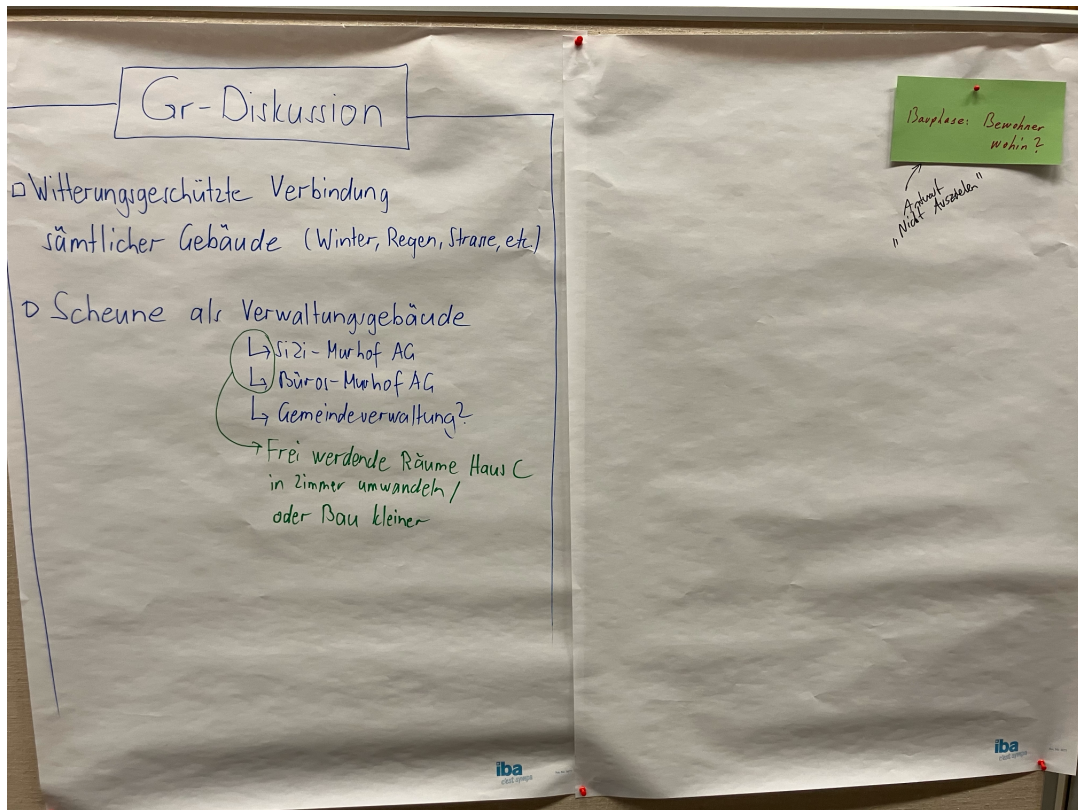 Gr-Diskussion
Witterungsgeschützte Verbindung
sämtlicher Gebäude (Winter, Regen, Strasse, etc.)
Scheune als Verwaltungsgebäude
↳ SiZi-Murhof AG
↳ Büros-Murhof AG
↳ Gemeindeverwaltung?
→ Frei werdende Räume Haus C
in Zimmer umwandeln /
oder Bau kleiner
iba
c'est sympa
Bauphase: Bewohner
wohin?
Antwort
"Nicht Ausziehen"
iba
c'est sympa